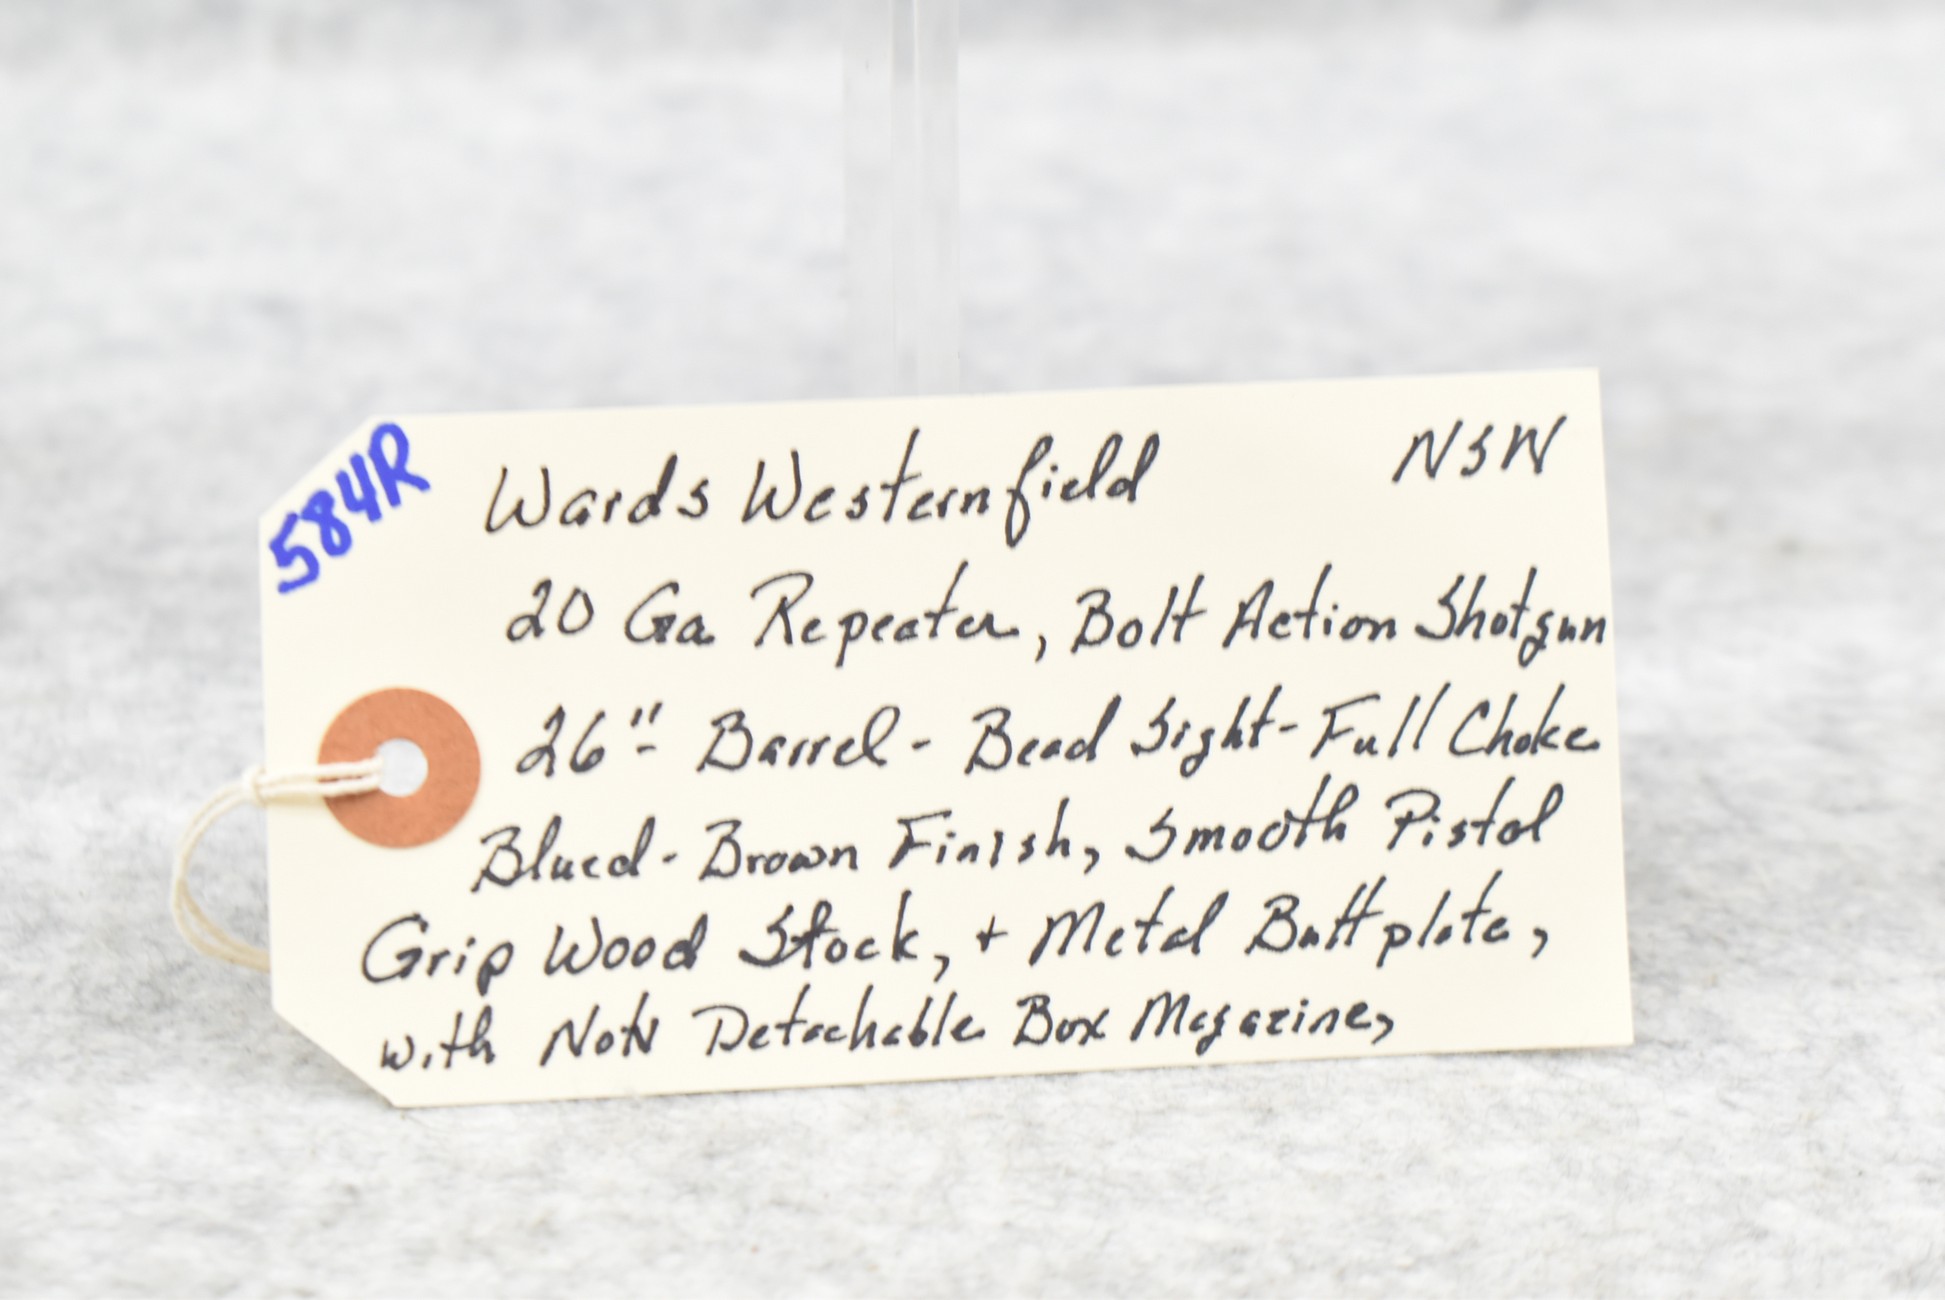 584R
Wards Westernfield NSW
20 Ga Repeater, Bolt Action Shotgun
26" Barrel - Bead Sight - Full Choke
Blued - Brown Finish, Smooth Pistol
Grip Wood Stock, + Metal Buttplate,
with NoN Detachable Box Magazine,